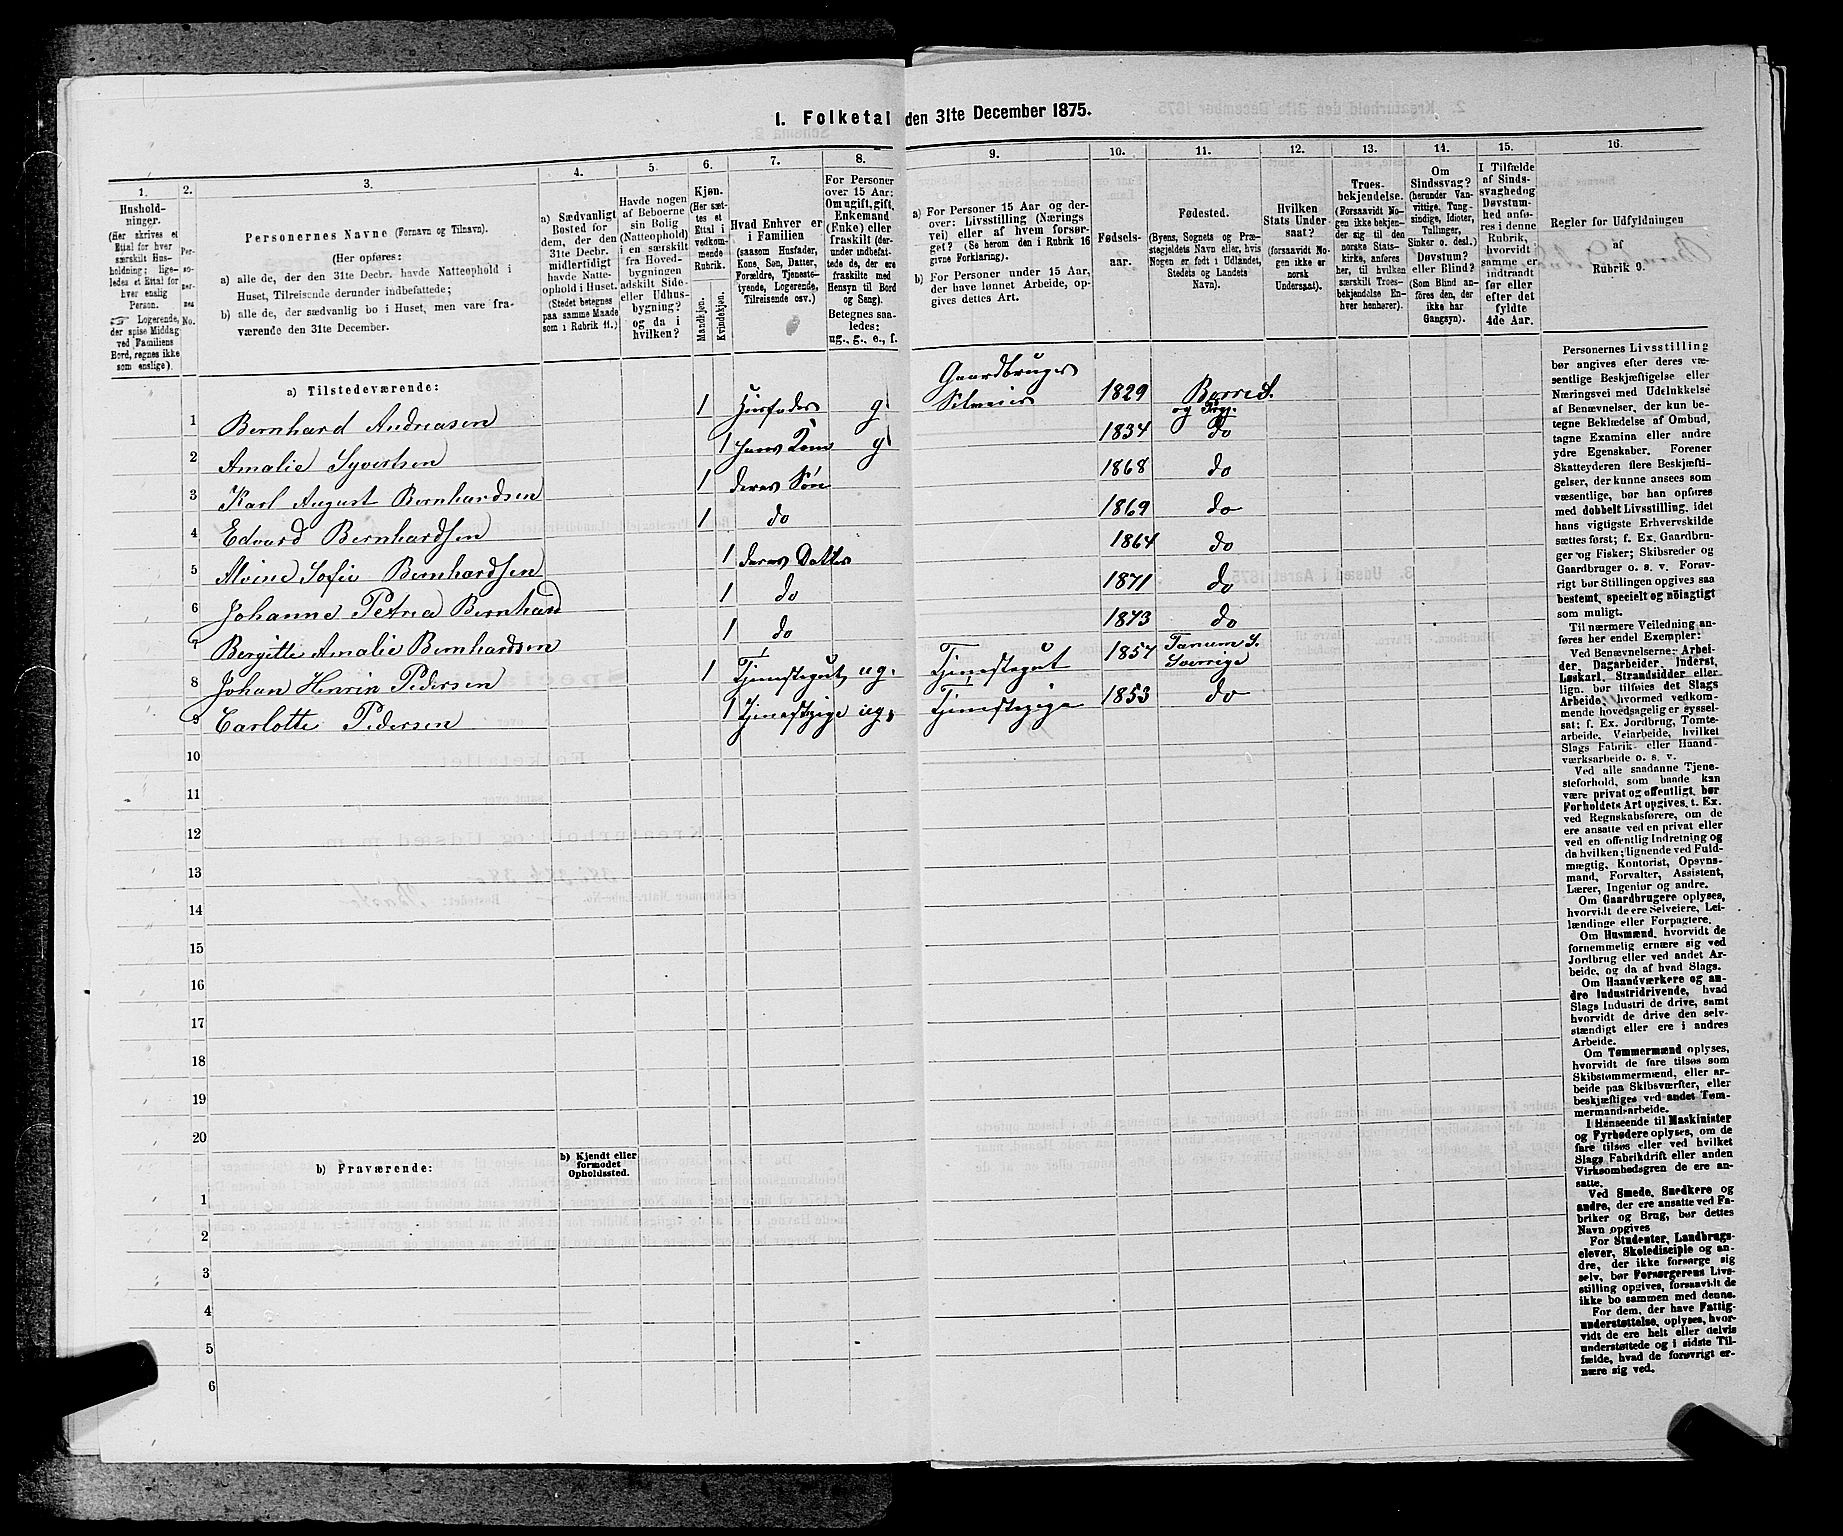 1. Folketal den 31te December 1875.
1.
Hushold-
ninger.
(Her skrives et
Ettal for hver
særskilt Hus-
holdning; lige-
ledes et Ettal for
hver enslig
Person.
Logerende,
der spise Middag
ved Familiens
Bord, regnes ikke
som enslige).
2.
Per-
so-
ner-
nes
No.
3.
Personernes Navne (Fornavn og Tilnavn).
(Her opføres:
a) alle de, der den 31te Decbr. havde Natteophold i
Huset, Tilreisende derunder indbefattede;
b) alle de, der sædvanlig bo i Huset, men vare fra-
værende den 31te December.
4.
a) Sædvanligt
Bosted for
dem, der den
31te Decbr.
midlertidigt
havde Natte-
ophold i Huset.
(Stedet betegnes
paa samme Maade
som i Rubrik 11.)
5.
Havde nogen
af Beboerne
sin Bolig
(Natteophold)
i en særskilt
fra Hoved-
bygningen
adskilt Side-
eller Udhus-
bygning?
og da i
hvilken?
6.
Kjøn.
(Her sæt-
tes et
Ettal i
vedkom-
mende
Rubrik.
Mandkjøn.
Kvindekjøn.
7.
Hvad Enhver er
i Familien
(saasom Husfader,
Kone, Søn, Datter,
Forældre, Tjeneste-
tyende, Logerende,
Tilreisende osv.)
8.
For Personer
over 15 Aar:
Om ugift, gift,
Enkemand
(Enke) eller
fraskilt (der-
under indbefat-
tede de, der ere
fraskilte med
Hensyn til Bord
og Seng).
Betegnes saa-
ledes:
ug., g., e., f.
9.
a) For Personer 15 Aar og der-
over: Livsstilling (Nærings-
vei) eller af hvem forsør-
get? (Se herom den i Rubrik 16
givne Forklaring).
b) For Personer under 15 Aar,
der have lønnet Arbeide, op-
gives dettes Art.
10.
Fødsels-
aar.
11.
Fødested.
(Byens, Sognets og Præ-
stegjeldets Navn eller, hvis
Nogen er født i Udlandet,
Stedets og Landets
Navn).
12.
Hvilken
Stats Under-
saat?
(forsaavidt No-
gen ikke er
norsk
Undersaat).
13.
Troes-
bekjendelse.
(Forsaavidt No-
gen ikke bekjen-
der sig til den
norske Stats-
kirke, anføres
her, til hvilken
særskilt Troes-
bekjendelse En-
hver henhører).
14.
Om
Sindssvag?
(herunder Van-
vittige, Tung-
sindige, Idioter,
Tullinger,
Sinker o. desl.)
Døvstum?
eller Blind?
(Som Blind an-
føres den, der
ikke har
Gangsyn).
15.
I Tilfælde
af Sinds-
svaghed og
Døvstum-
hed anfø-
res i denne
Rubrik,
hvorvidt
samme er
indtraadt
før eller
efter det
fyldte
4de Aar.
16.
Regler for Udfyldningen
af
Rubrik 9.
a) Tilstedeværende:
1 Bernhard Andreasen 1 Husfader g. Gaardbruger Selveier 1829 Borred. og Prgj.
2 Amalie Syvertsen 1 hans Kone g 1834 do
3 Karl August Bernhardsen 1 deres Søn 1868 do
4 Edvard Bernhardsen 1 do 1869 do
5 Alvine Sofie Bernhardsen 1 deres Datter 1864 do
6 Johanne Petrea Bernhard 1 do 1871 do
7 Bergitte Amalie Bernhardsen 1 do 1873 do
8 Johan Henrin Pedersen 1 Tjenestegut ug. Tjenestegut 1857 Tanum S. Sverrige
9 Carlotte Pedersen 1 Tjenestpige ug. Tjenestpige 1853 do
10
11
12
13
14
15
16
17
18
19
20
b) Fraværende:
b) Kjendt eller
formodet
Opholdssted.
1
2
3
4
5
6
Personernes Livsstilling
bør angives efter deres væ-
sentlige Beskjæftigelse eller
Næringsvei med Udelukkelse
af Benævnelser, der kun be-
tegne Beklædelse af Ombud,
tagne Examina eller andre
ydre Egenskaber. Forener
Skatteyderen flere Beskjæfti-
gelser, der kunne ansees som
væsentlige, bør han opføres
med dobbelt Livsstilling, idet
hans vigtigste Erhvervskilde
sættes først; f. Ex. Gaardbru-
ger og Fisker; Skibsreder og
Gaardbruger o. s. v. Forøv-
rigt bør Stillingen opgives saa
bestemt, specielt og nöiagtigt
som muligt.
Til nærmere Veiledning an-
føres her endel Exempler:
Ved Benævnelserne: Arbei-
der, Dagarbeider, Inderst,
Løskarl, Strandsidder eller
lign. bør tilføies det Slags
Arbeide, hvormed vedkom-
mende hovedsagelig er syssel-
sat; f. Ex. Jordbrug, Tomte-
arbeide, Veiarbeide, hvilket
Slags Fabrik- eller Haand-
værksarbeide o. s. v.
Ved alle saadanne Tjene-
steforhold, som baade kan
være privat og offentligt, bør
Forholdets Art opgives, t. Ex.
ved Regnskabsførere, om de
ere ansatte ved en privat eller
ved en offentlig Indretning og
da hvilken; lignende ved Fuld-
mægtig, Kontorist, Opsyns-
mand, Forvalter, Assistent,
Lærer, Ingeniør og andre.
Om Gaardbrugere oplyses,
hvorvidt de ere Selveiere, Lei-
lændinge eller Forpagtere.
Om Husmænd, hvorvidt de
fornemmelig ernære sig ved
Jordbrug eller ved andet Ar-
beide, og da af hvad Slags.
Om Haandværkere og an-
dre Industridrivende, hvad
Slags Industri de drive, samt
hvorvidt de drive den selv-
stændigt eller ere i andres
Arbeide.
Om Tømmermænd oplyses,
hvorvidt de fare tilsøs som
Skibstømmermænd, eller ar-
beide paa Skibsværfter, eller
beskjæftiges ved andet Tøm-
mermandsarbeide.
I Henseende til Maskinister
og Fyrbødere oplyses, om de
fare tilsøs eller ved hvilket
Slags Fabrikdrift eller anden
Virksomhedsgren de ere an-
satte.
Ved Smede, Snedkere og
andre, der ere ansatte ved Fa-
briker og Brug, bør dettes
Navn opgives
For Studenter, Landbrugs-
elever, Skoledisciple og an-
dre, der ikke forsørge sig
selv, bør Forsørgerens Livs-
stilling opgives, forsaavidt de
ikke bo sammen med denne.
For dem, der have Fattig-
understøttelse, oplyses, hvor-
vidt de ere helt eller delvis
understøttede og i sidste Til-
fælde, hvad de forøvrigt er-
nære sig ved.